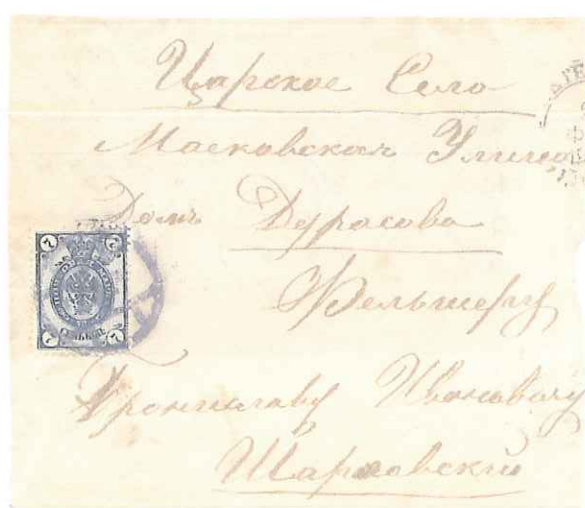 Царское Село
Московская Улица
Домъ Дурасова
Фельшеру
Брониславу Ивановичу
7 7
7 7